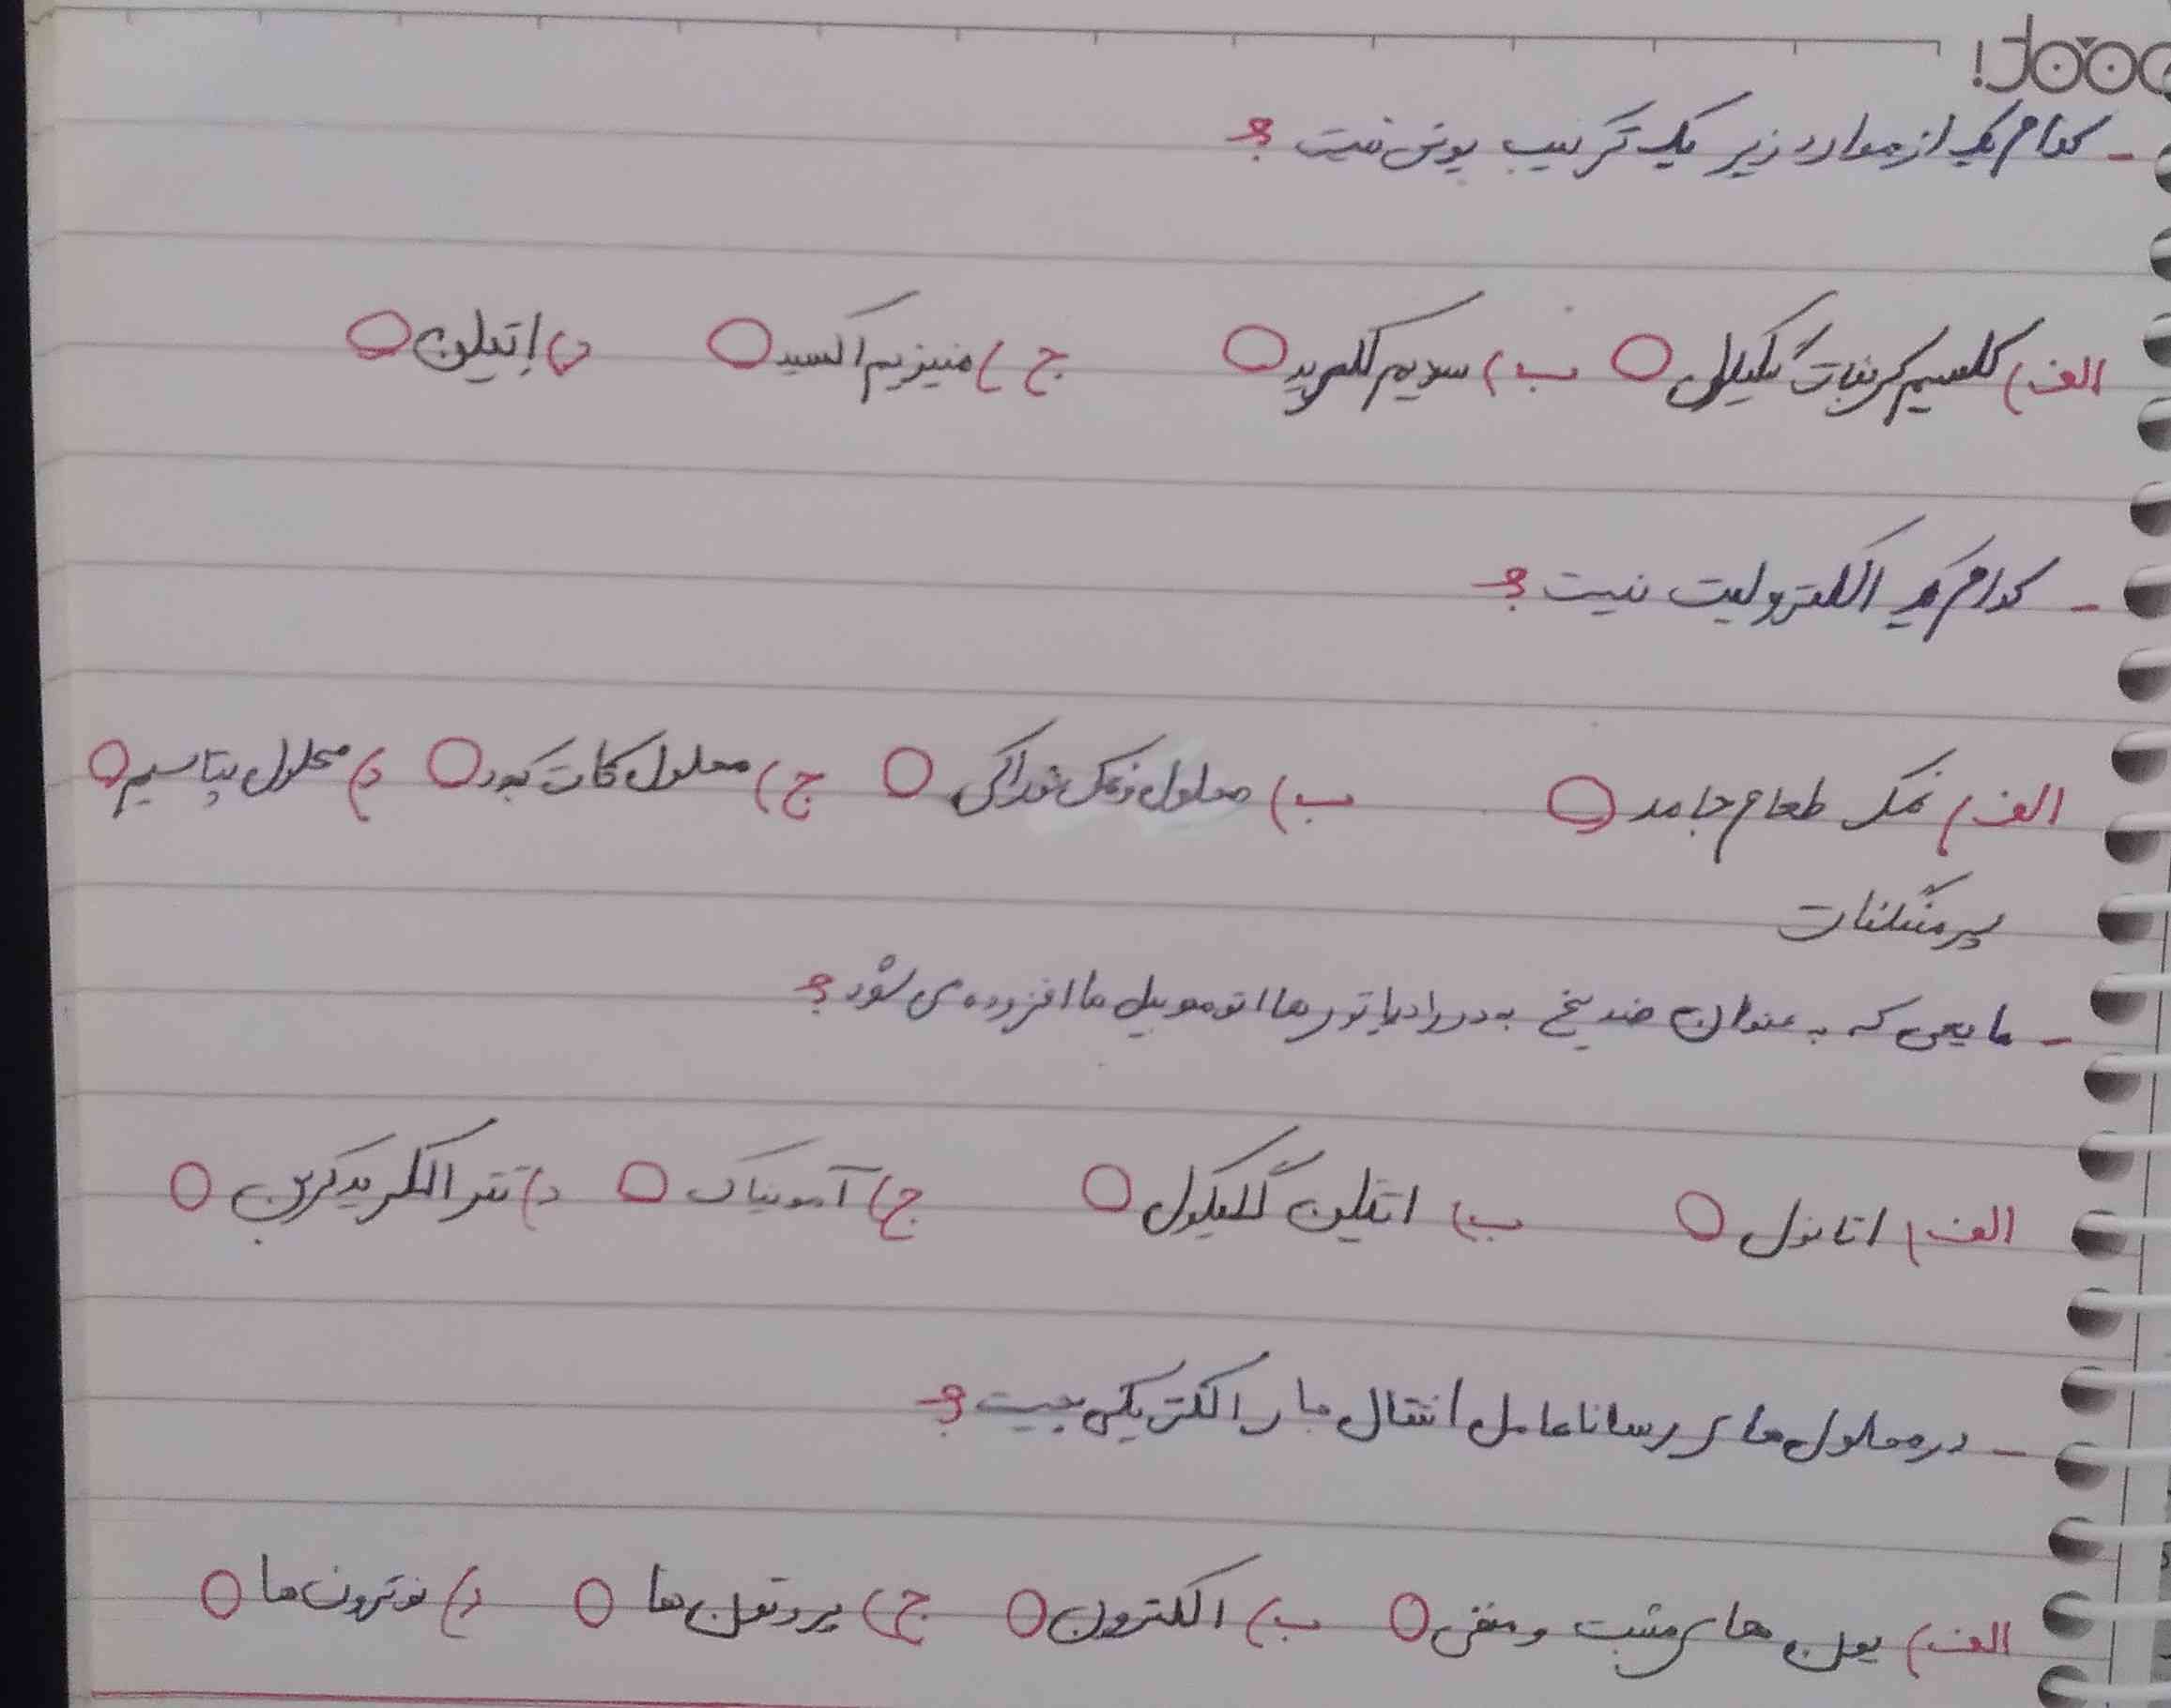 - کدام یک از موارد زیر یک ترکیب یونی نیست ؟
الف) کلسیم کربنات ب) سدیم کلرید ج) منیزیم اکسید د) اتیلن
- کدام یک الکترولیت نیست ؟
الف) نمک طعام جامد ب) محلول نمک خوراکی ج) محلول کات کبود د) محلول پتاسیم
پرمنگنات
- مایعی که به عنوان ضد یخ به در رادیاتور ها اتوموبیل ها افزوده می شود ؟
الف) اتانول ب) اتیلن گلیکول ج) آمونیاک د) تترا کلرید کربن
- در محلول های رسانا عامل انتقال بار الکتریکی چیست ؟
الف) یون های مثبت و منفی ب) الکترون ج) پروتون ها د) نوترون ها